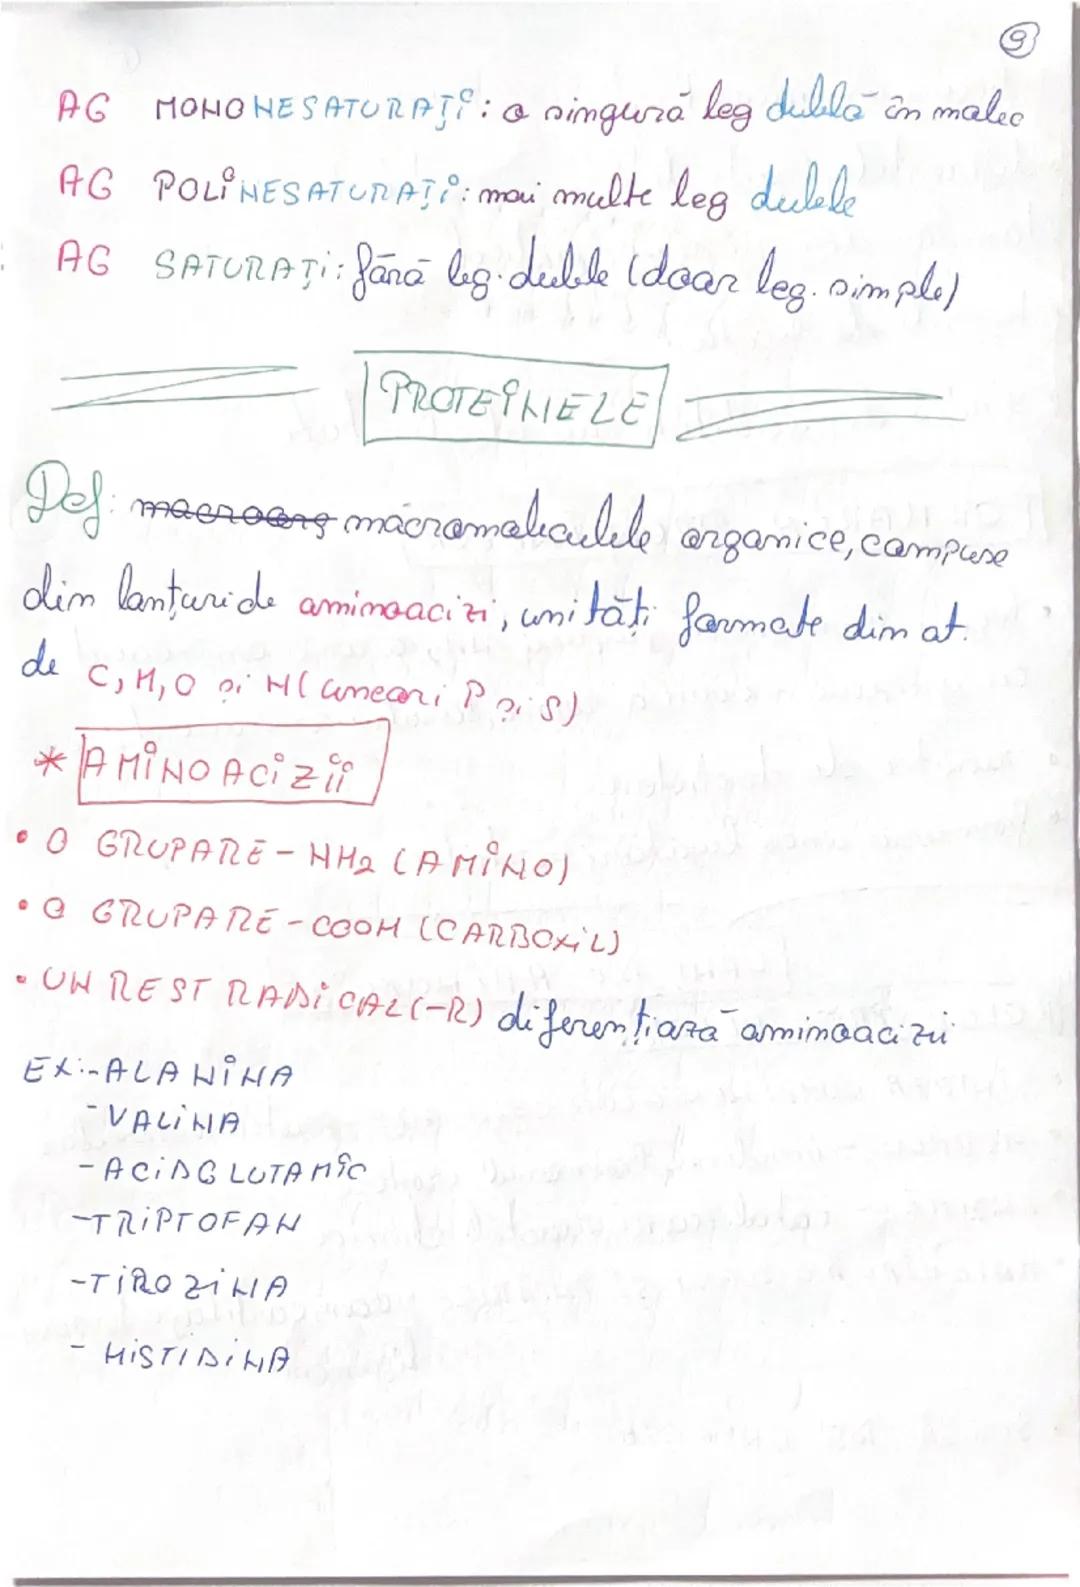 9
AG MONONESATURAȚI: o singură leg dublă în molec
AG POLINESATURAȚI: mai multe leg duble
AG SATURAȚI: fără leg. duble (doar leg. simple)
PROTEINELE
Def: macroorg macromoleculele organice, compuse
din lanțuri de aminoacizi, unități formate din at.
de C, H, O și N (uneori P și S)
* AMINOACIZII
• O GRUPARE - NH2 (AMINO)
• O GRUPARE - COOH (CARBOXIL)
• UN REST RADICAL (-R) diferențiază aminoacizii
EX: - ALANINA
- VALINA
- ACID GLUTAMIC
- TRIPTOFAN
- TIROZINA
- HISTIDINA